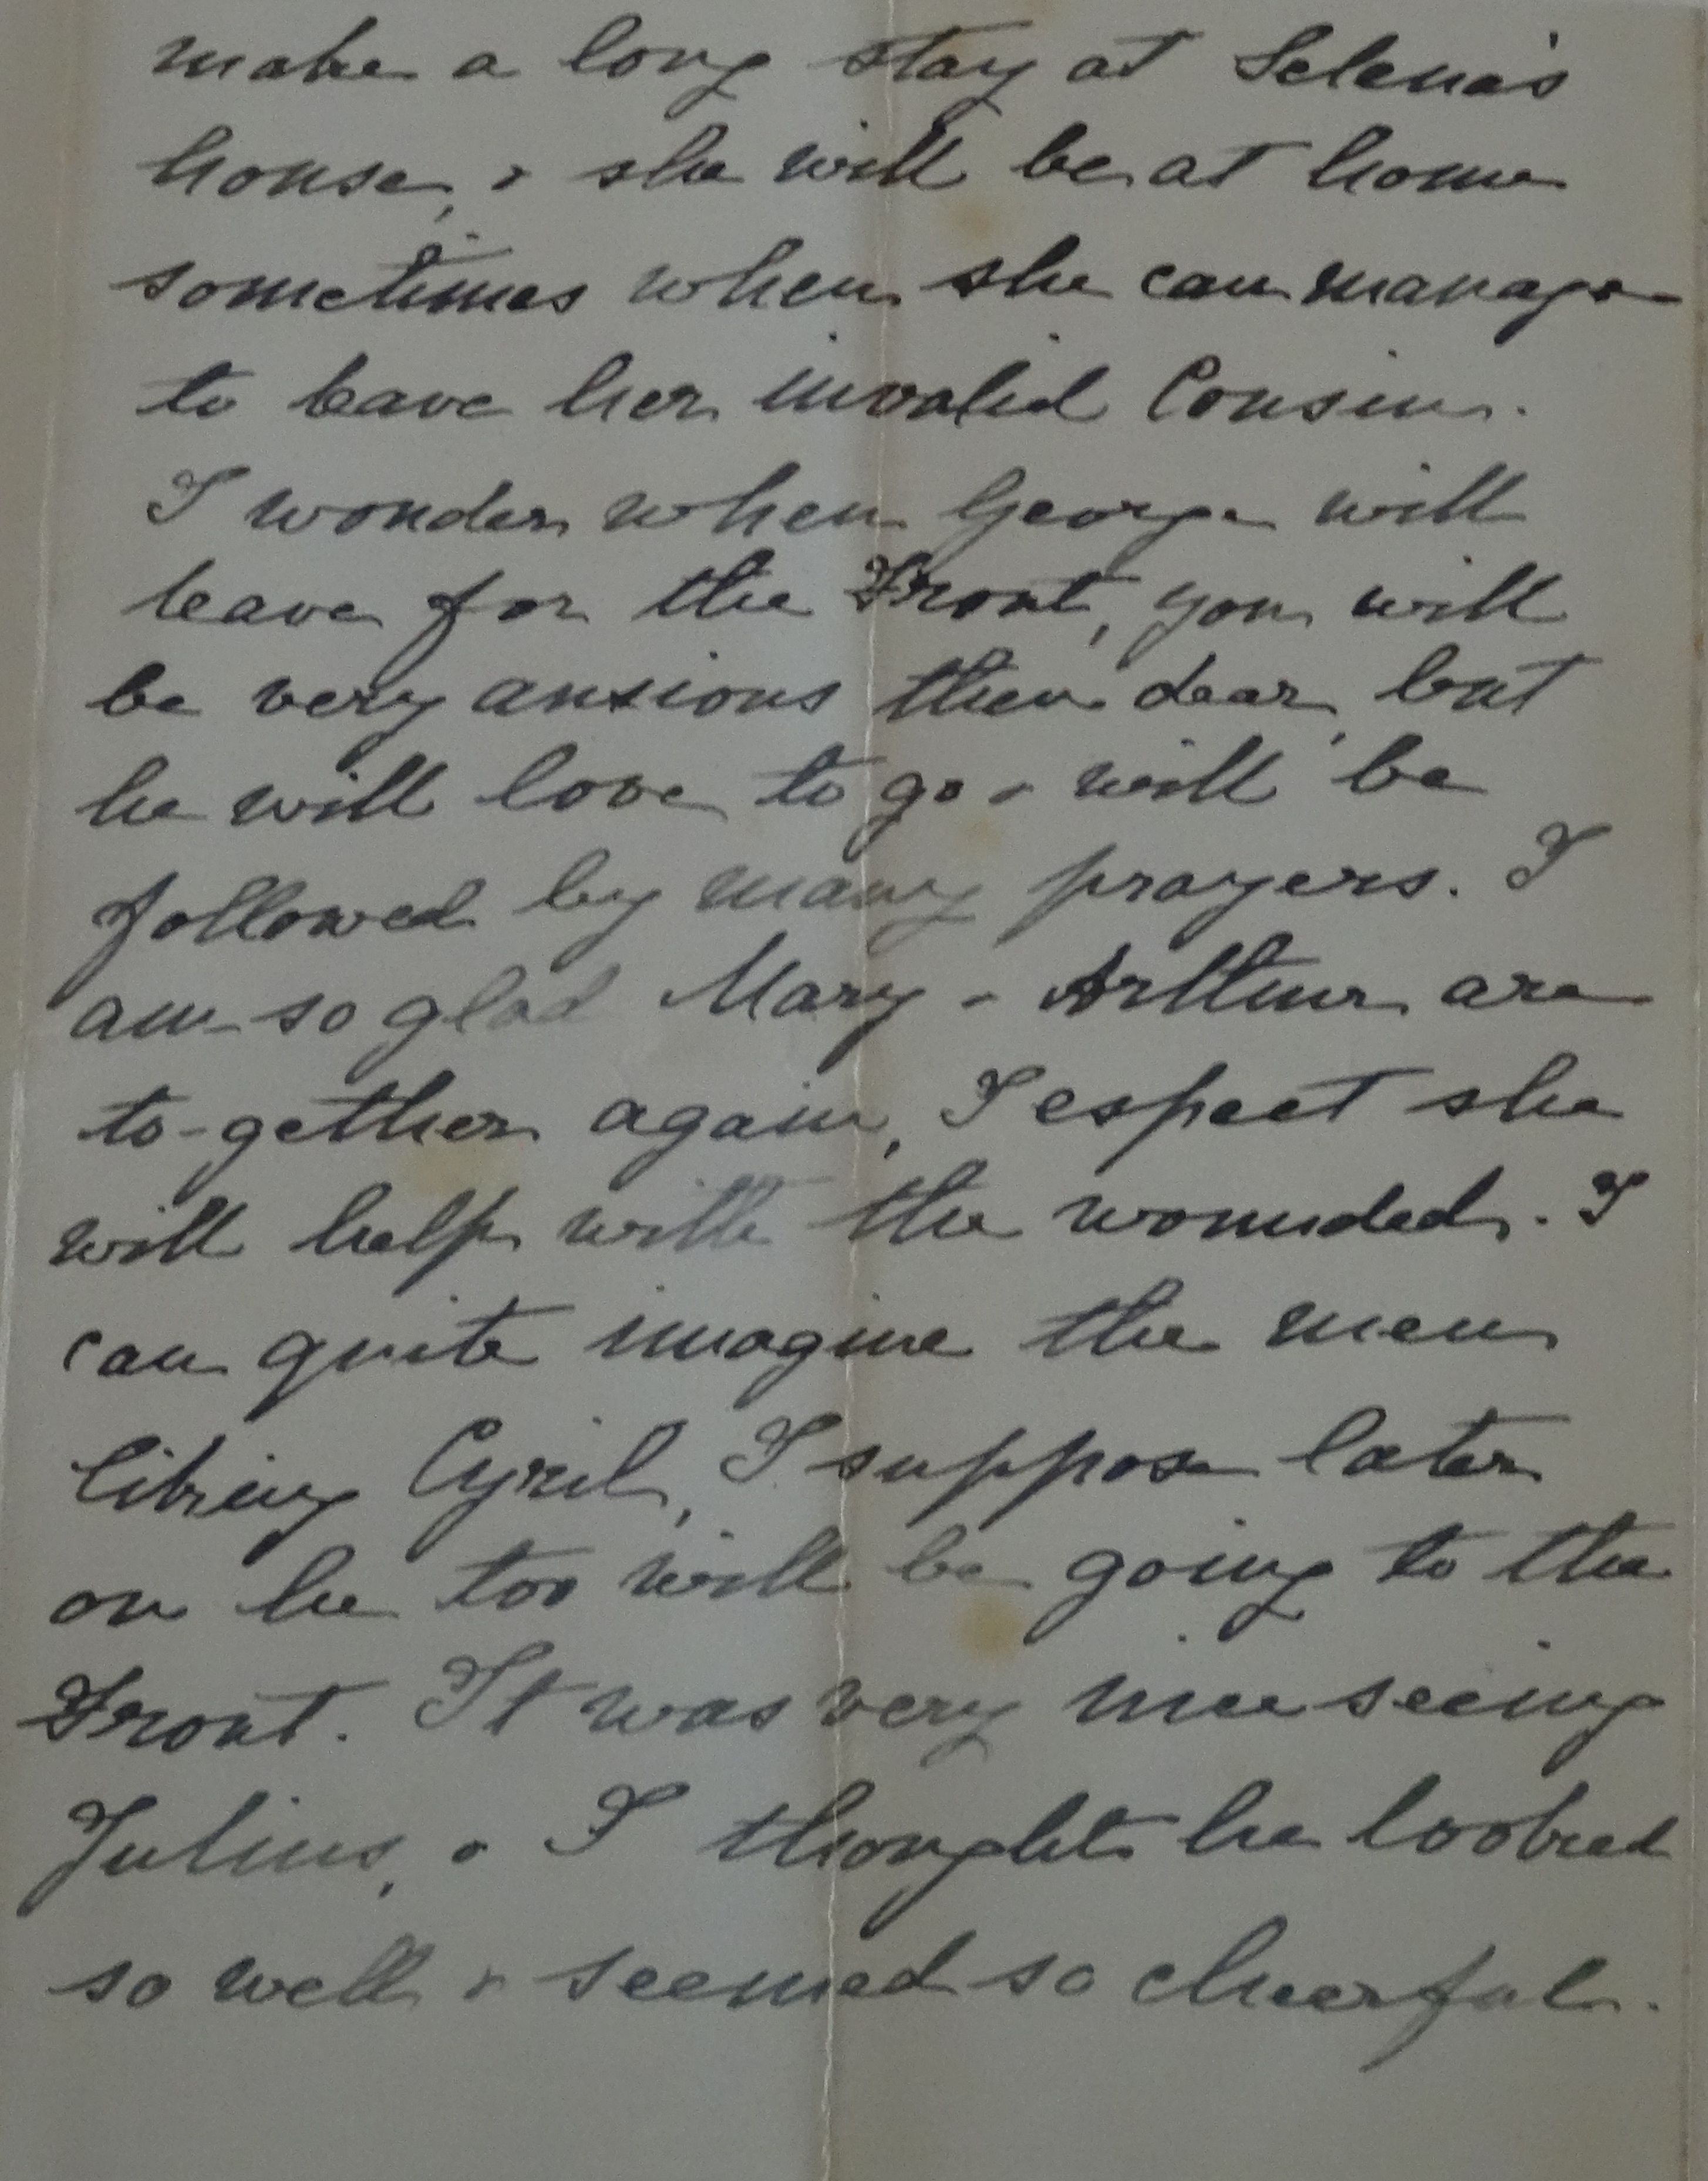 make a long stay at Selena's
house, & she will be at home
sometimes when she can manage
to leave her invalid Cousin.
I wonder when George will
leave for the Front, you will
be very anxious then dear, but
he will love to go & will be
followed by many prayers. I
am so glad Mary & Arthur are
to-gether again, I expect she
will help with the wounded. I
can quite imagine the men
liking Cyril, I suppose later
on he too will be going to the
Front. It was very nice seeing
Julius, & I thought he looked
so well & seemed so cheerful.